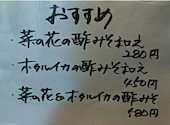 おすすめ
・菜の花の酢みそ和え
280円
・ホタルイカの酢みそ和え
450円
・菜の花&ホタルイカの酢みそ
580円